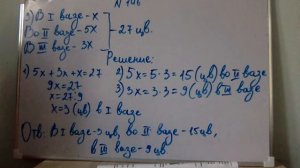 N 146
3) В I вазе - x
Во II вазе - 5x
В III вазе - 3x
27 цв.
Решение:
1) 5x + 3x + x = 27
9x = 27
x = 27:9
x = 3 (цв) в I вазе
2) 5x = 5·3 = 15 (цв) во II вазе
3) 3x = 3·3 = 9 (цв) в III вазе
Отв: В I вазе - 3 цв, во II вазе - 15 цв,
в III вазе - 9 цв